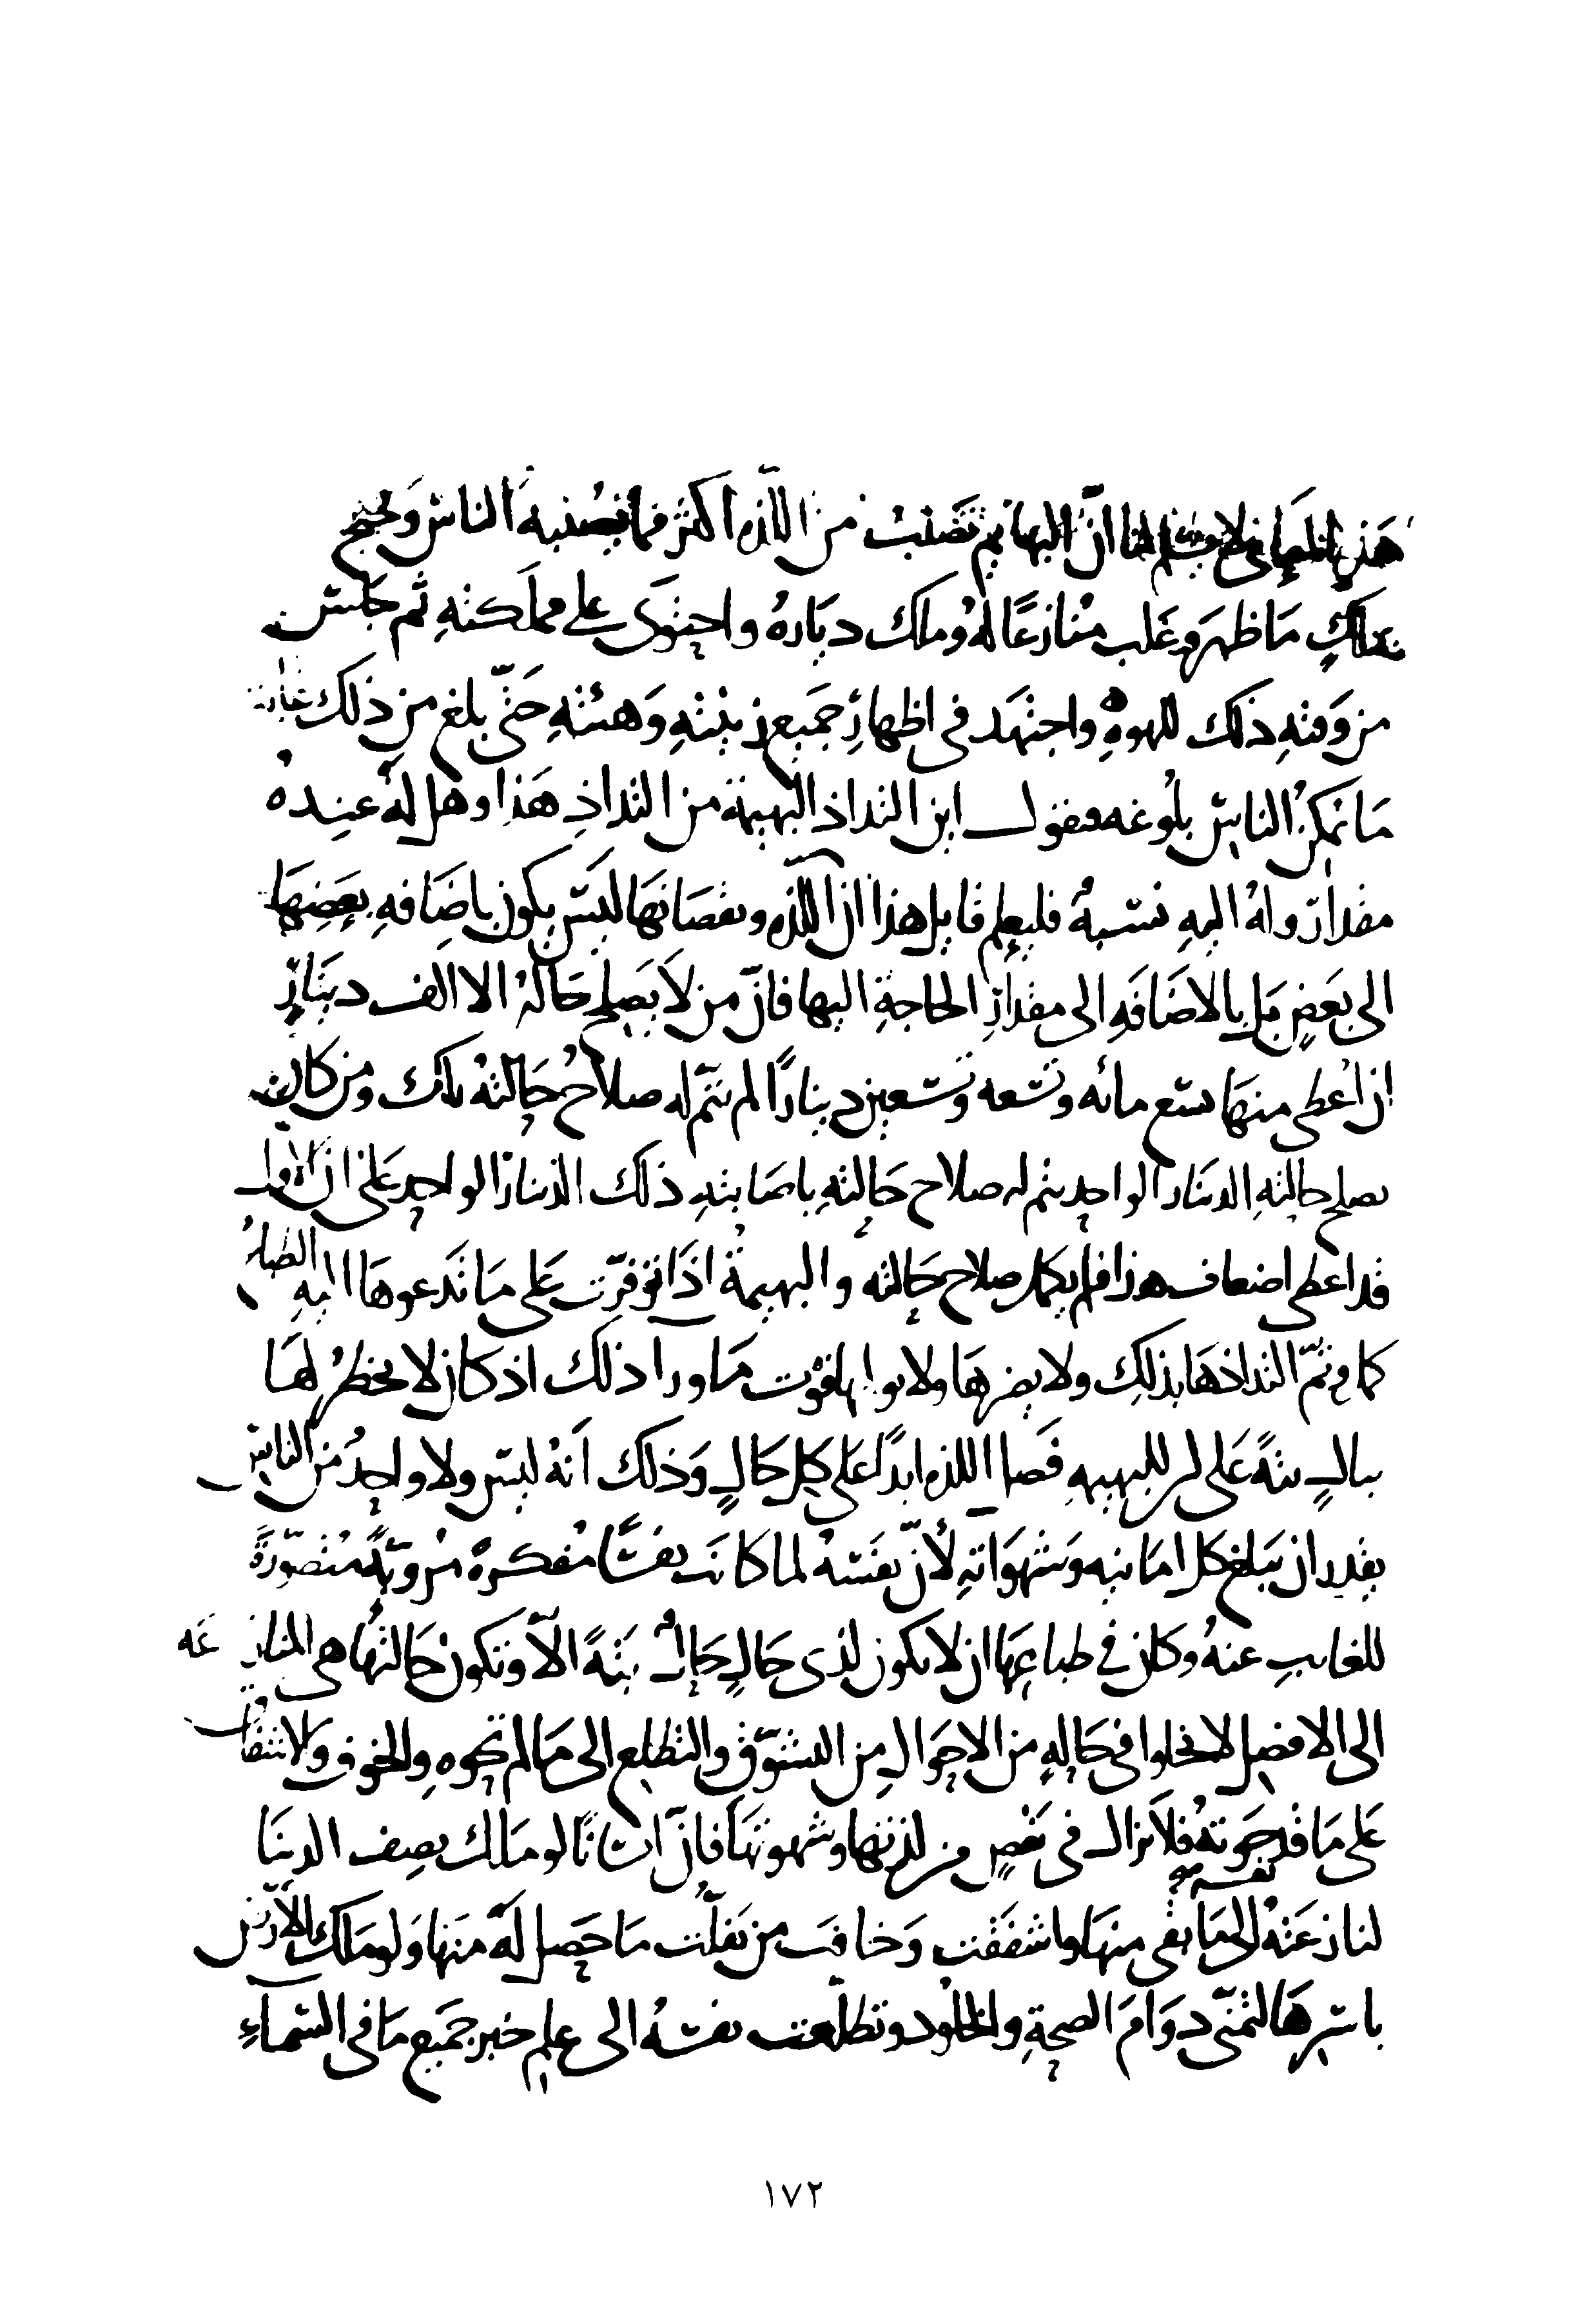 هذه المعاني فلا يسلم لنا انّ البهايم تصيب من اللذه اكثر مما يصيبه الناس ويحتج
بملكٍ مَا ظهرَ وغلب مُنازعًا لهُ وملك ديَارهُ واحتوى على مملكتهِ ثم جلسَ
من وقتهِ ذلك للهوهِ واجتهَد في اظهارِ جمَيع زينتهِ وَهيئتهِ حَتّى بلغ من ذلك غاية
مَا يمكنُ الناسَ بلُوغه فنقول اين التذاذ البهيمة من التذاذِ هَذا وهل لهُ عندهُ
مقدارٌ او لهُ اليهِ نسَبهٌ فليعلم قايل هذا ان اللذه ونقصَانهَا ليسَ يكون باضَافهِ بعَضِهَا
الى بعَضٍ بَل بالاضَافَهِ الى مقدارِ الحاجةِ اليها فانّ من لاَ يَصلح حَالهُ الا الف ديَنارٍ
ان اعُطى منهَا تسع مائه وتسعه وتسعين دينارًا لم يتمّ له صلاحُ حَالتهُ تلك ومن كان
يصلح حالتهِ الدينَار الواحد يتم له صلاح حَالتهِ باصَابتهِ ذلك الدينار الواحد عَلى ان الاول
قد اعطى اضعاف هذا فلم يكمل صلاح حَالته والبهيمةُ اذا توفرّت عَلى مَا تَدعوهَا اليهِ الطباعُ
كمل وتمّ التذاذهَا بذلك ولا يضرهَا ولا يولمها فوْت مَا ورا ذلك اذ كان لا يخطرُ لهَا
ببالٍ بتةً عَلى ان للبهيمه فَضل اللذه ابدًا على كل حَالٍ وَذلك اَنهُ ليسَ ولا واحدٌ من الناسِ
يقدر ان يَبلغ كل امَانيه وَشهوَاتهِ لأنّ نفسَهُ لما كانت نفسًا مُفكرهً مُروّيةً مُتصوّرةً
للغايبِ عنهُ وكان في طباعهَا ان لا يكون لذى حَالٍ حَالٌ بَتةً الاّ وتكون حَالتهُا هي المنازعَه
الى الافضل لا تخلوا في حَالهٍ من الاحوَالِ من التشوّق والتطلع الى مَا لم تحوهِ والخوف والاشفاق
عَلى مَا قد حَوَتهُ فلاَ تزال في نَقصٍ من لذتها وشهوتهَا فانّ انسانًا لو ملك نصِف الدنيَا
لنازعَتهُ نفسه الى مَا بقى منهَا واشفقَت وَخافت من تفلّت مَا حَصل لهَ منهَا وَلو مَلك الارض
باسرهَا لتمنّى دوَامَ الصحةِ والخلُود وتطلعت نفسهُ الى علم خبر جمَيع مَا في السّماءِ
١٧٢